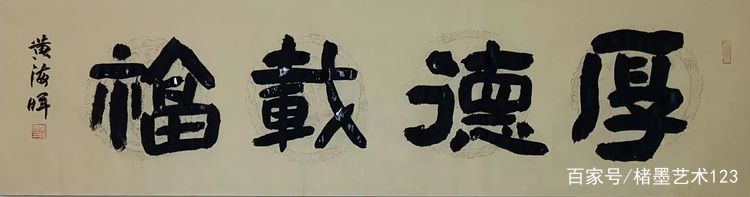 厚德載福
黄海暉
百家号/楮墨艺术123